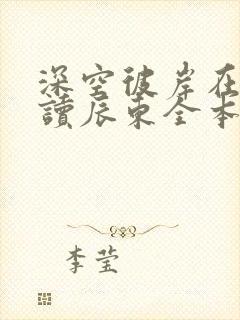 深空彼岸在
讀辰東全本
李莹